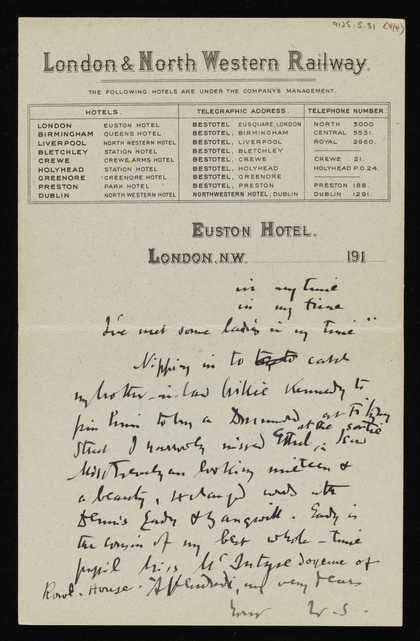 9125.5.31 (4/4)
London & North Western Railway.
THE FOLLOWING HOTELS ARE UNDER THE COMPANY'S MANAGEMENT.
HOTELS. TELEGRAPHIC ADDRESS. TELEPHONE NUMBER
LONDON EUSTON HOTEL BESTOTEL, EUSQUARE, LONDON NORTH 3000
BIRMINGHAM QUEENS HOTEL BESTOTEL, BIRMINGHAM CENTRAL 5531.
LIVERPOOL NORTH WESTERN HOTEL BESTOTEL, LIVERPOOL ROYAL 2960.
BLETCHLEY STATION HOTEL BESTOTEL, BLETCHLEY
CREWE CREWE ARMS HOTEL BESTOTEL, CREWE CREWE 21.
HOLYHEAD STATION HOTEL BESTOTEL, HOLYHEAD HOLYHEAD P.O.24.
GREENORE GREENORE HOTEL BESTOTEL, GREENORE
PRESTON PARK HOTEL BESTOTEL, PRESTON PRESTON 188.
DUBLIN NORTH WESTERN HOTEL NORTHWESTERN HOTEL, DUBLIN DUBLIN 1291.
EUSTON HOTEL.
LONDON, N.W. 191
in my time
in my time
I've met some ladies in my time"
Nipping in to catch
my brother-in-law Willie Kennedy to
join him to buy a at
Street I narrowly missed Ethel, at the sortie saw
Miss Trevelyan looking nineteen &
a beauty, exchanged words with
Dennis Eady & Zangwill. Eady is
the cousin of my best whole-time
pupil Miss McIntyre of
Royal-House. my very dears
Your W.S.